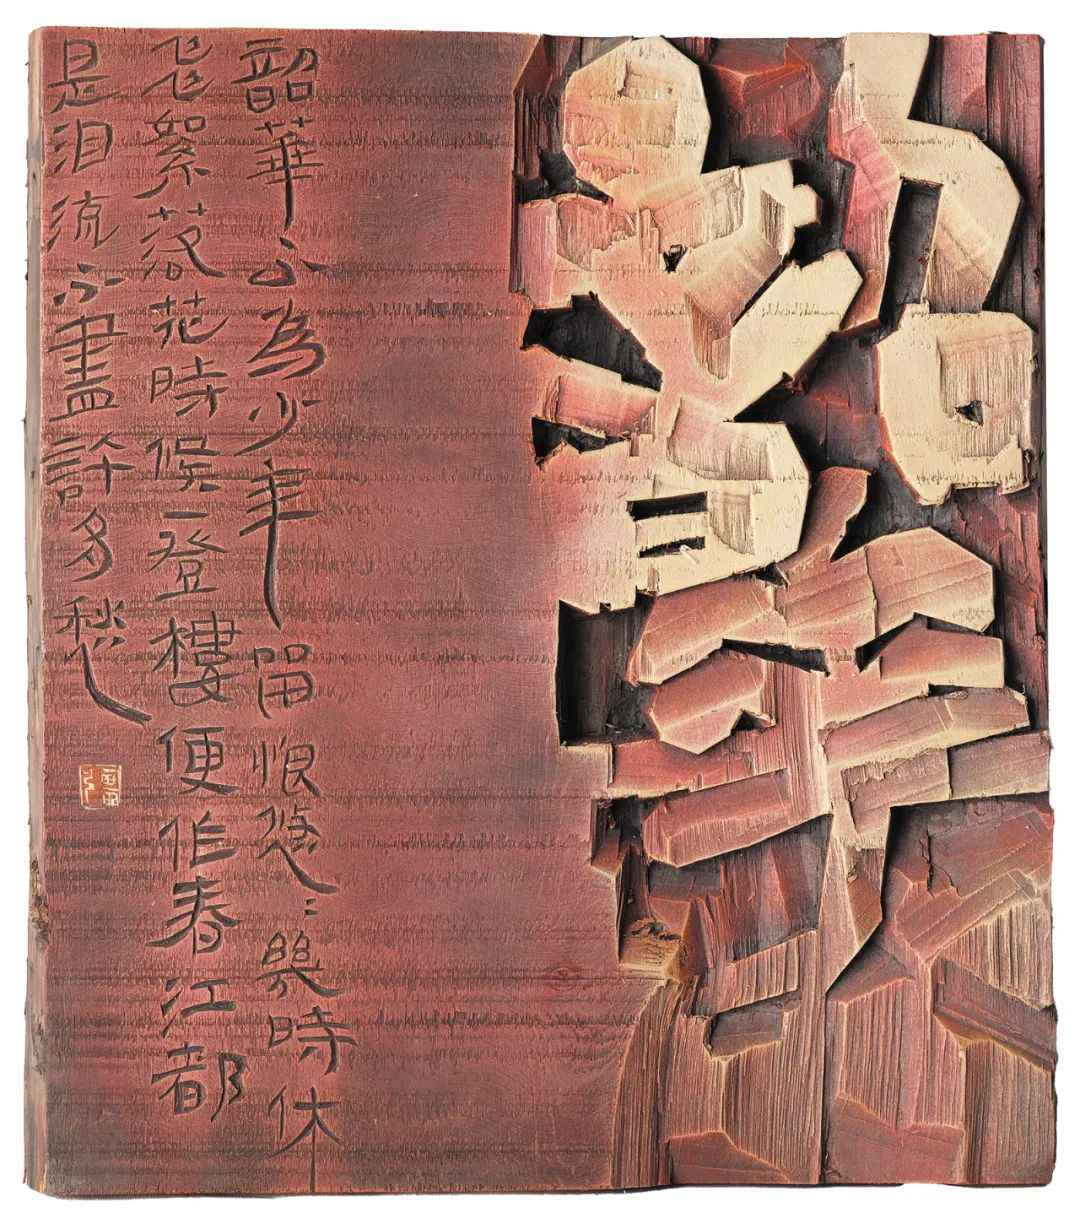 韶華
韶華不為少年留恨悠〻幾時休
飛絮落花時候一登樓便作春江都
是泪流不盡許多愁